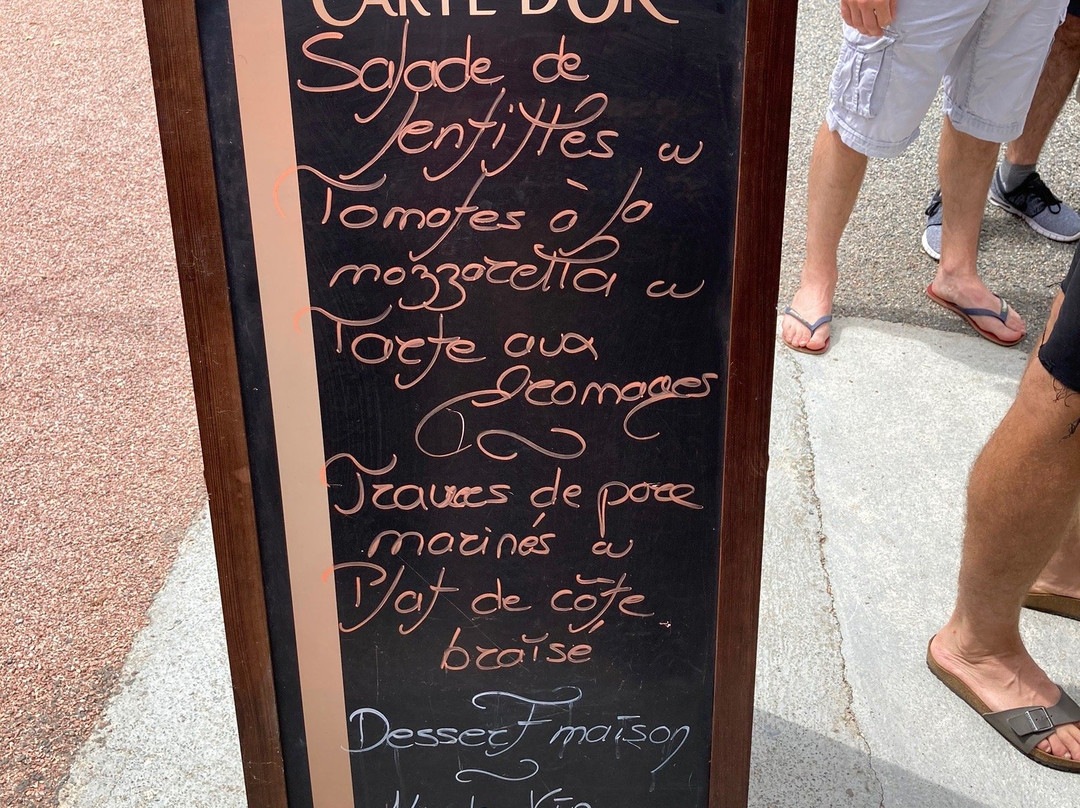 CARTE D'OR
Salade de
lentilles ou
Tomates à la
mozzarella ou
Tarte aux
fromages
Travers de porc
marinés ou
Plat de côte
braisé
Dessert maison